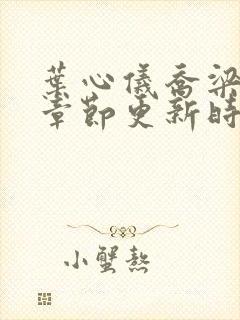 葉心儀喬梁
章節更新時
小蟹熬